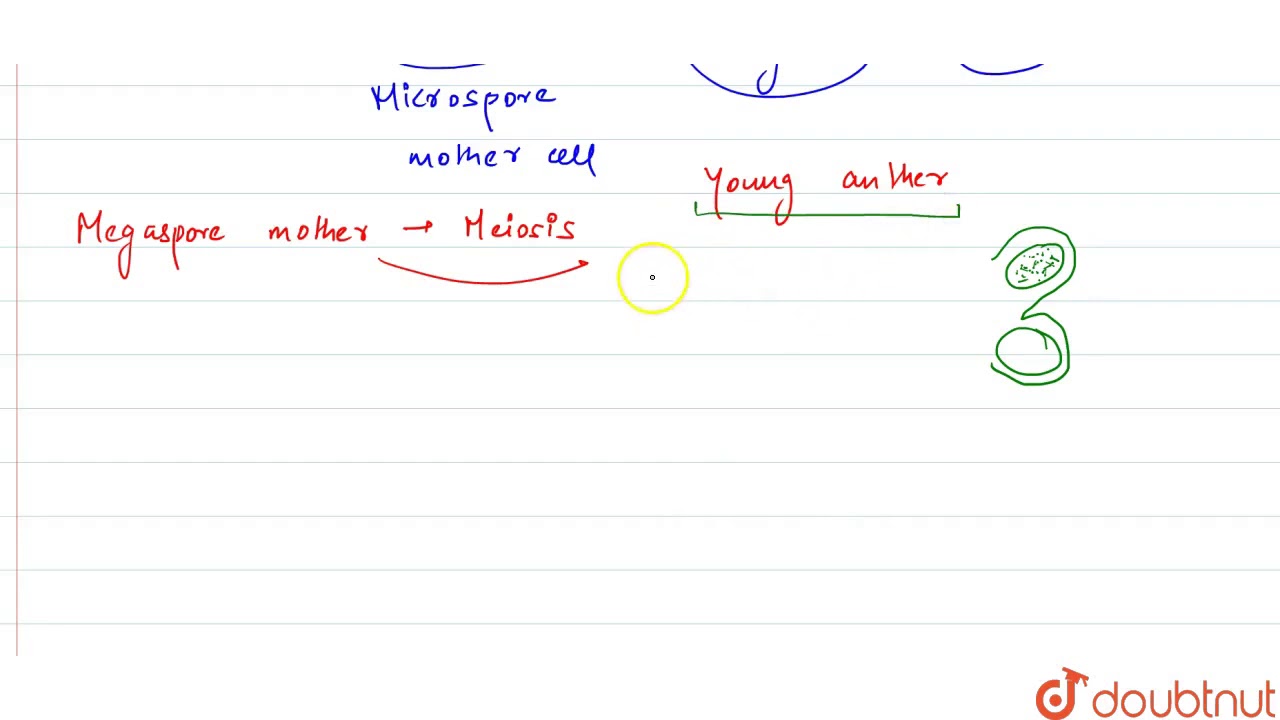 Microspore
mother cell
Young anther
Megaspore mother → Meiosis
doubtnut